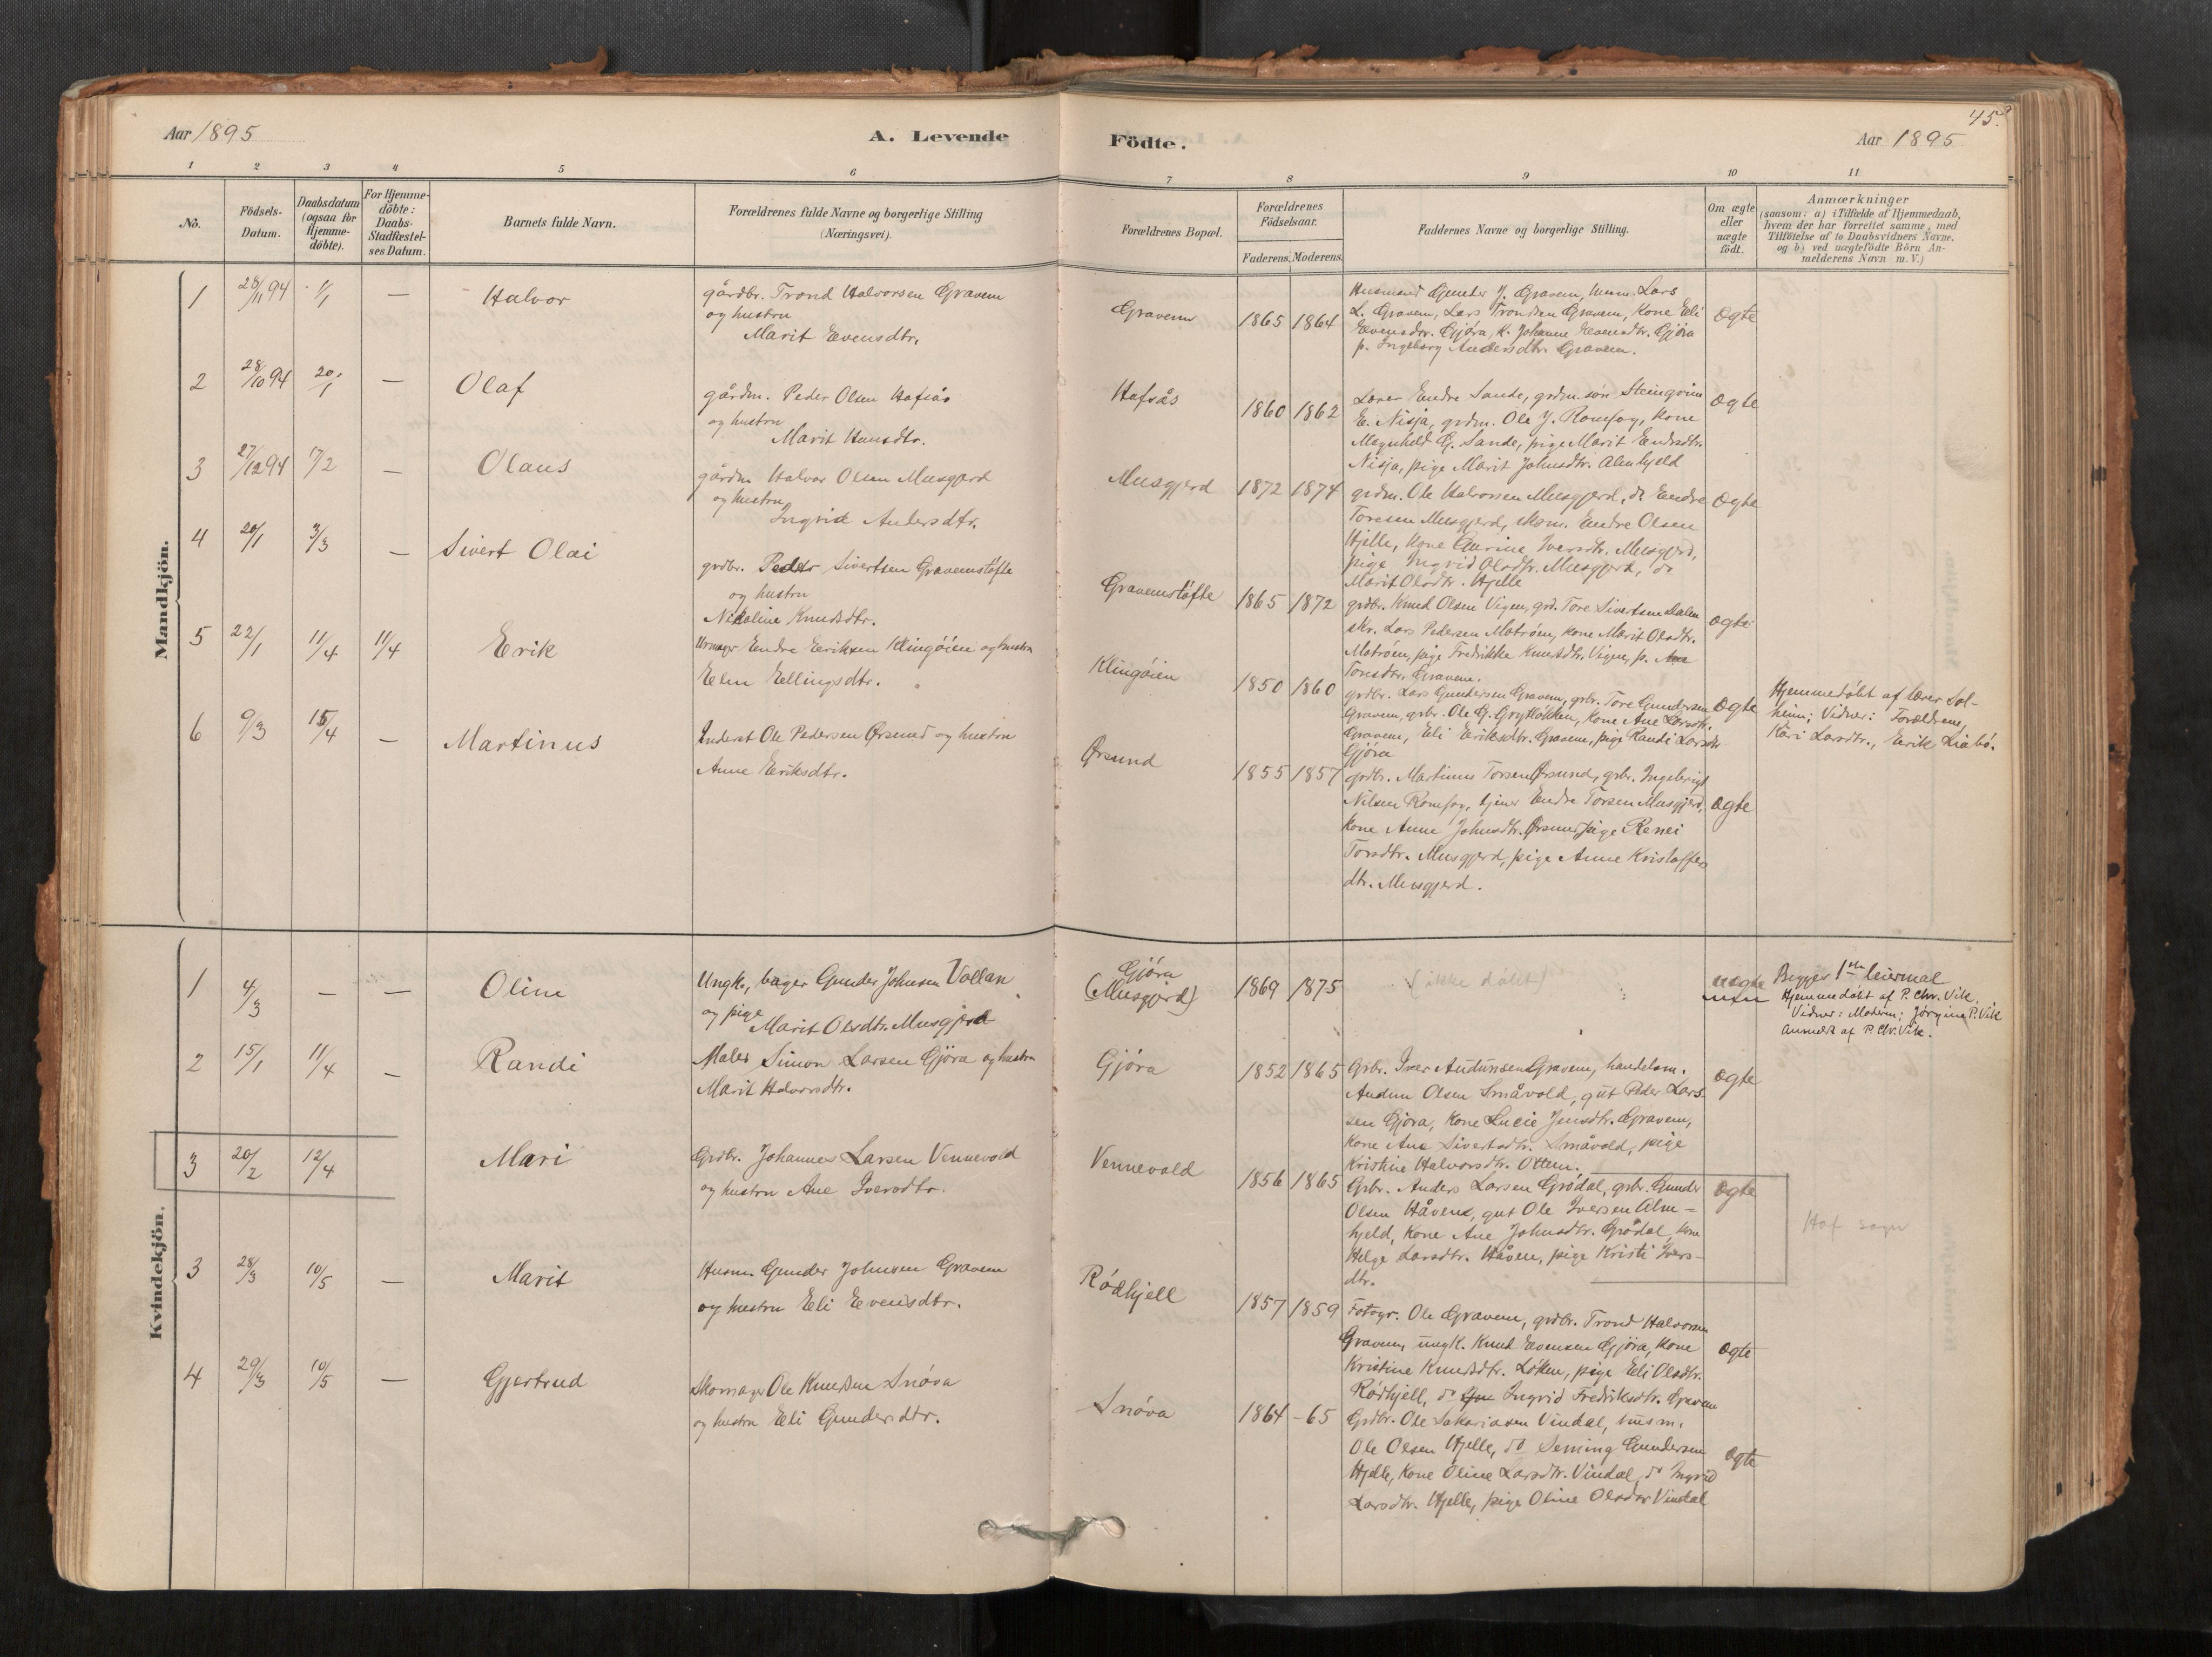 45.
Aar 1895
A. Levende
Födte.
Aar 1895
1 2 3 4 5 6 7 8 9 10 11
No.
Födsels-
Datum.
Daabsdatum
(ogsaa for
Hjemme-
döbte).
For Hjemme-
döbte:
Daabs-
Stadfæstel-
ses Datum.
Barnets fulde Navn.
Forældrenes fulde Navne og borgerlige Stilling
(Næringsvei).
Forældrenes Bopæl.
Forældrenes
Födselsaar.
Faderens. Moderens.
Faddernes Navne og borgerlige Stilling.
Om ægte
eller
uægte
födt.
Anmærkninger
(saasom: a) i Tilfælde af Hjemmedaab,
hvem der har forrettet samme, med
Tilföielse af to Daabsvidners Navne,
og b) ved uægtefödte Börn An-
melderens Navn m. V.)
Mandkjön.
1 28/11 94 1/1 — Halvor
gårdbr. Trond Halvorsen Gravem
og hustru
Marit Evensdtr.
Gravem 1865 1864
Husmand Gunder J. Gravem, Lars
L. Gravem, Lars Trondsen Gravem, kone Eli
Evensdtr. Gjøra, k. Johanne Evensdtr. Gjøra
p. Ingeborg Andersdtr. Gravem.
Ægte
2 28/10 94 20/1 — Olaf
gårdm. Peder Olsen Hafsås
og hustru
Marit Hansdtr.
Hafsås 1860 1862
Lærer Endre Sande, grdm. søn Steingrim
E. Nisja, grdm. Ole J. Romfog, kone
Magnhild G. Sande, pige Marit Endresdtr.
Nisja, pige Marit Johnsdtr. Almhjeld
Ægte
3 27/12 94 17/2 — Olaus
gårdm Halvor Olsen Musgjerd
og hustru
Ingrid Andersdtr.
Musgjerd 1872 1874
grdm. Ole Halvorsen Musgjerd, do Endre
Toresen Musgjerd, skom. Endre Olsen
Hjelle, kone Gurine Iversdtr. Musgjerd,
pige Ingrid Olsdtr. Musgjerd, do
Marit Olsdtr. Hjelle
Ægte
4 20/1 3/3 — Sivert Olai
grdbr. Peder Sivertsen Gravemstøfte
og hustru
Nikoline Knudsdtr.
Gravemstøfte 1865 1872
grdbr. Knud Olsen Vigen, grd. Tore Sivertsen Dalen
skr. Lars Pedersen Motrøen, kone Marit Olsdtr.
Motrøen, pige Fredrikke Knudsdtr. Vigen, p. Ane
Toresdtr. Gravem.
Ægte
5 22/1 11/4 11/4 Erik
Urmager Endre Eriksen Klingøien og hustru
Elen Ellingsdtr.
Klingøien 1850 1860
grdbr. Lars Gundersen Gravem, grbr. Tore Gundersen
Gravem, grbr. Ole G. Grytløkken, kone Ane Larsdtr.
Gravem, Eli Eriksdtr. Gravem, pige Randi Larsdtr
Gjøra
Ægte
Hjemmedøbt af lærer Sol-
heim; Vidner: Forældrene,
Kari Larsdtr., Erik Liabø.
6 9/3 15/4 — Martinus
Inderst Ole Pedersen Ørsund og hustru
Anne Eriksdtr.
Ørsund 1855 1857
grdbr. Martinus Torsen Ørsund, grbr. Ingebrigt
Nilsen Romfog, tjener Endre Torsen Musgjerd,
kone Anne Johnsdtr. Ørsund, pige Renei
Torsdtr. Musgjerd, pige Anne Kristoffers
dtr. Musgjerd.
Ægte
Kvindekjön.
1 4/3 — — Oline
Ungk., bager Gunder Johnsen Vollan
og pige
Marit Olsdtr. Musgjerd
Gjøra
(Musgjerd)
1869 1875
(ikke døbt)
uægte
Begges 1ste leiermal
Hjemmedøbt af P. Chr. Vik.
Vidner: Moderen; Jørgine P. Vik
Anmeldt af P. Chr. Vik.
2 15/1 11/4 — Randi
Maler Simon Larsen Gjøra og hustru
Marit Halvorsdtr.
Gjøra 1852 1865
Grbr. Iver Audunsen Gravem, handelsm.
Audun Olsen Småvold, gut Peder Lars-
sen Gjøra, kone Lucie Jensdtr. Gravem,
kone Ane Sivertsdtr. Småvold, pige
Kristine Halvorsdtr. Ottem.
Ægte
3 20/2 12/4 Mari
Grdbr. Johannes Larsen Vennevold
og hustru Ane Iversdtr.
Vennevold 1856 1865
Grbr. Anders Larsen Grødal, grbr. Gunder
Olsen Håven, gut Ole Iversen Alm-
hjeld, kone Ane Johnsdtr. Grødal, kone
Helge Larsdtr. Håven, pige Kristi Ivers-
dtr.
Ægte
Hof sogn
3 28/3 10/5 — Marit
Husm. Gunder Johnsen Gravem
og hustru Eli Evensdtr.
Rødhjell 1857 1859
Fotogr. Ole Gravem, grdbr. Trond Halvorsen
Gravem, ungk. Knud Evensen Gjøra, kone
Kristine Knudsdtr. Løken, pige Eli Olsdtr.
Rødhjell, do Ingrid Fredriksdtr. Gravem
Ægte
4 29/3 10/5 — Gjertrud
Skomager Ole Knudsen Snøva
og hustru Eli Gundersdtr.
Snøva 1864 -65
Grdbr. Ole Sakariasen Vindal, husm.
Ole Olsen Hjelle, do Seming Gundersen
Hjelle, kone Oline Larsdtr. Vindal, do Ingrid
Larsdtr. Hjelle, pige Oline Olsdtr Vindal
Ægte